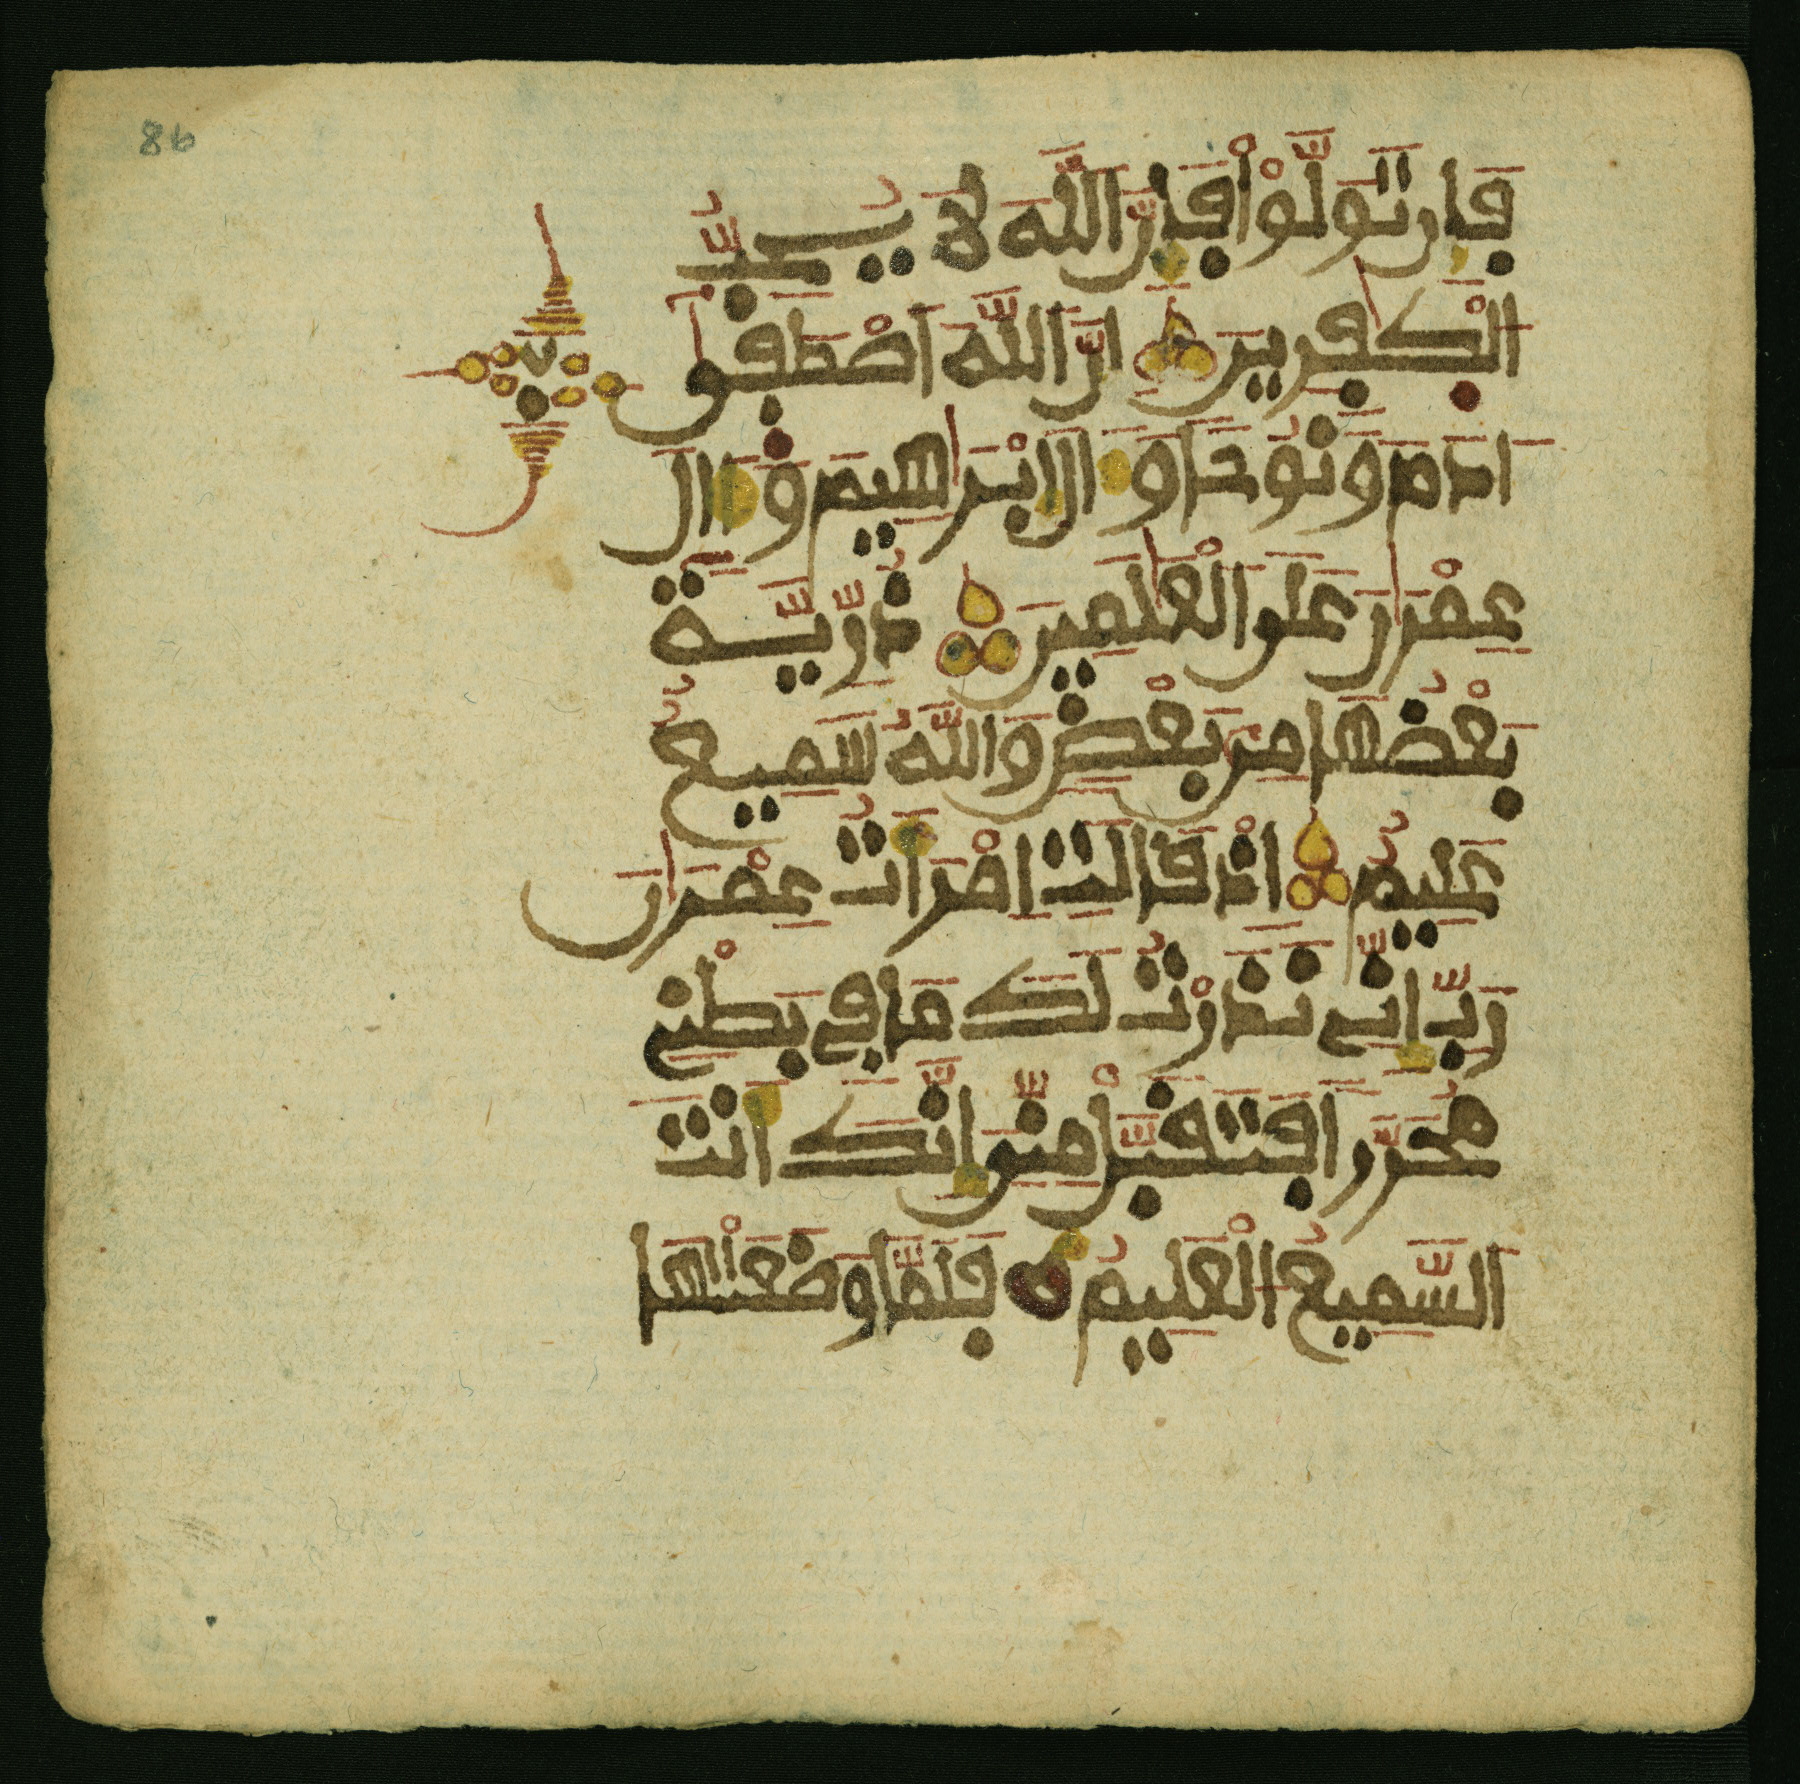 86
فَإِن تَوَلَّوْاْ فَإِنَّ اَللَّهَ لَا يُحِبُّ
اُلْكٰفِرِينَ إِنَّ اَللَّهَ اَصْطَفٰى
ءَادَمَ وَنُوحاً وَءَالَ إِبْرَٰهِيمَ وَءَالَ
عِمْرَٰنَ عَلَى اَلْعَٰلَمِينَ ذُرِّيَّةَۢ
بَعْضُهَا مِنۢ بَعْضٍ وَاللَّهُ سَمِيعٌ
عَلِيمٌ إِذْ قَالَتِ اِمْرَأَتُ عِمْرَٰنَ
رَبِّ إِنِّى نَذَرْتُ لَكَ مَا فِى بَطْنِى
مُحَرَّراً فَتَقَبَّلْ مِنِّى إِنَّكَ أَنتَ
اَلسَّمِيعُ اَلْعَلِيمُ فَلَمَّا وَضَعَتْهَا